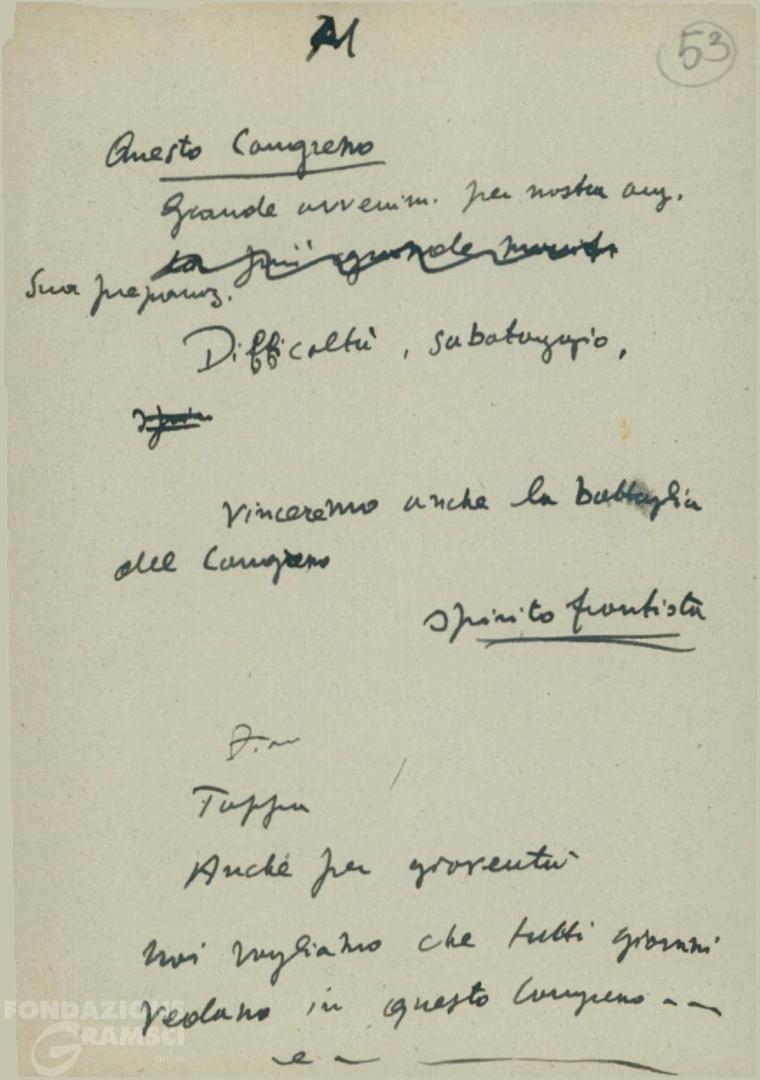 53
Questo Congresso
Grande avvenim. per nostra org.
La più grande
Sua preparaz.
Difficoltà, sabotaggio,
Vinceremo anche la battaglia
del Congresso
Spirito frontista
Tappa
Anche per gioventù
Noi vogliamo che tutti giovani
vedano in questo Congresso --
FONDAZIONE
GRAMSCI
onlus